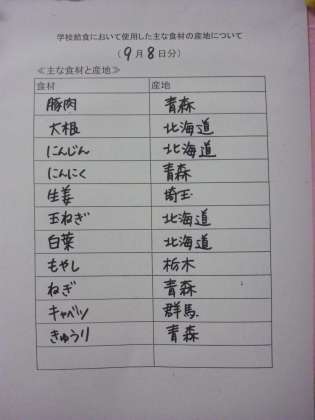 学校給食において使用した主な食材の産地について
(9月8日分)
≪主な食材と産地≫
食材 産地
豚肉 青森
大根 北海道
にんじん 北海道
にんにく 青森
生姜 埼玉
玉ねぎ 北海道
白菜 北海道
もやし 栃木
ねぎ 青森
キャベツ 群馬
きゅうり 青森